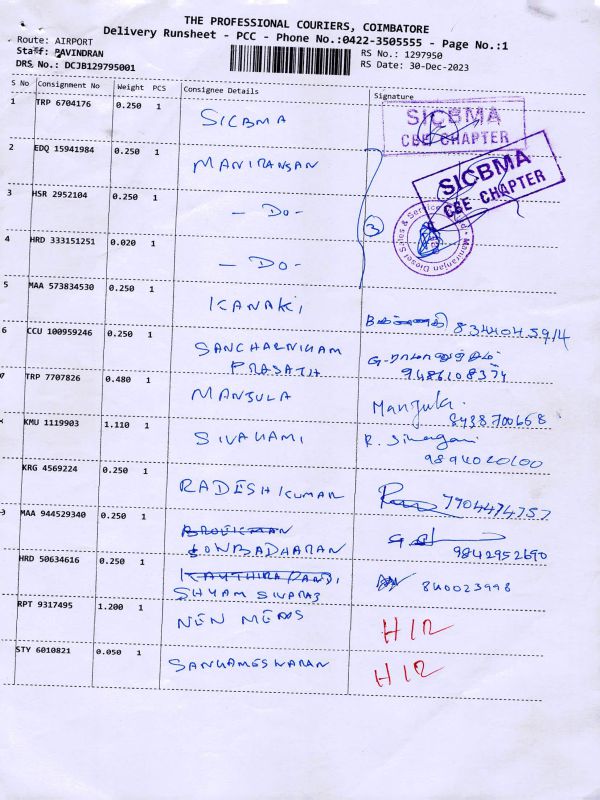 THE PROFESSIONAL COURIERS, COIMBATORE
Delivery Runsheet - PCC - Phone No.:0422-3505555 - Page No.:1
Route: AIRPORT
Staff: PAVINDRAN
DRS No.: DCJB129795001
RS No.: 1297950
RS Date: 30-Dec-2023
S No Consignment No Weight PCS Consignee Details Signature
1 TRP 6704176 0.250 1 SICBMA SICBMA CBE CHAPTER
2 EDQ 15941984 0.250 1 MANIRANJAN SICBMA CBE CHAPTER
3 HSR 2952104 0.250 1 - DO - 3
4 HRD 333151251 0.020 1 - DO -
5 MAA 573834530 0.250 1 KANAKI
6 CCU 100959246 0.250 1 PRASATH 9486108374
7 TRP 7707826 0.480 1 MANJULA Manjula. 8438700668
KMU 1119903 1.110 1 SIVAKAMI R. Sivagami 9894020100
KRG 4569224 0.250 1 RADESHKUMAR 7904474757
MAA 944529340 0.250 1 9842952690
HRD 50634616 0.250 1 SHYAM SIVARAJ 840023998
RPT 9317495 1.200 1 NEN MEDS H12
STY 6010821 0.050 1 SANGAMESWARAN H12